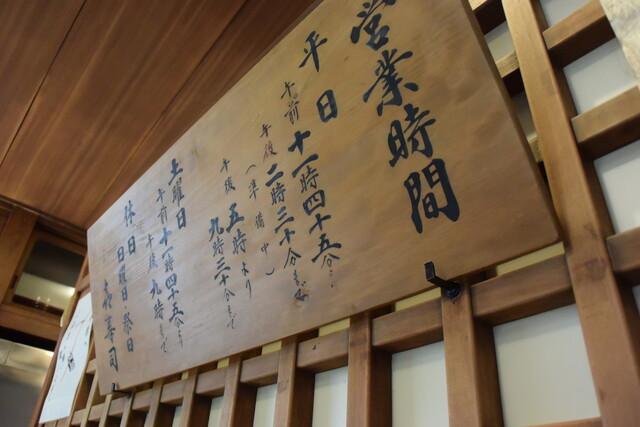 営業時間
平日
午前十一時四十五分より
午後二時三十分まで
（準備中）
午後五時より
九時三十分まで
土曜日
午前十一時四十五分より
午後九時まで
休日
日曜日祭日
寿司